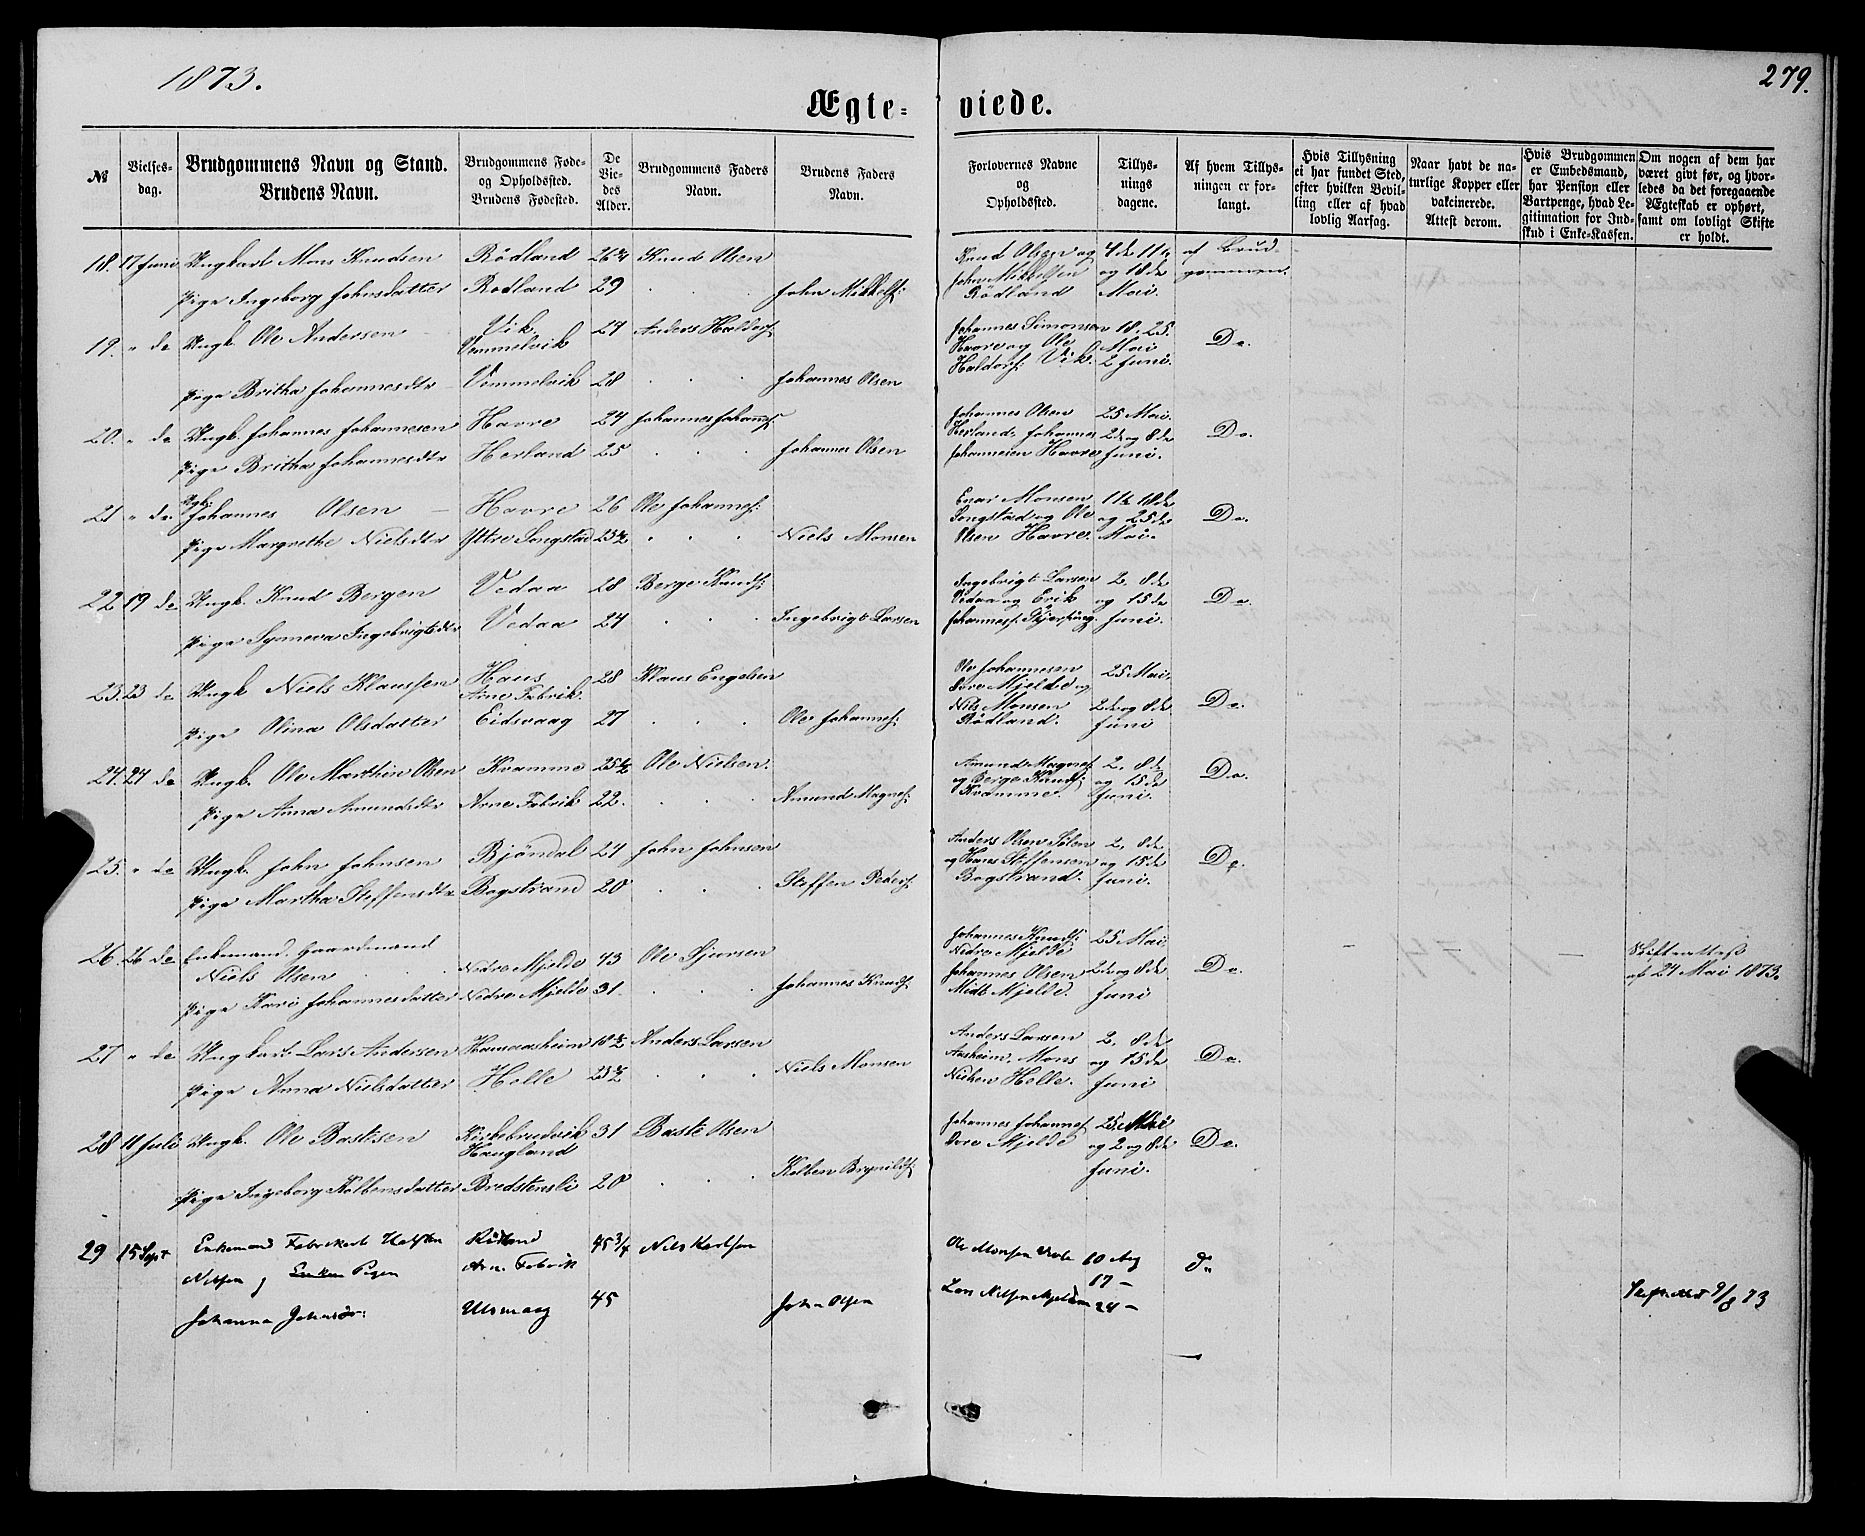 1873.
279.
Ægte- viede.
№
Vielses-
dag.
Brudgommens Navn og Stand.
Brudens Navn.
Brudgommens Føde-
og Opholdssted.
Brudens Fødested.
De
Vie-
des
Alder.
Brudgommens Faders
Navn.
Brudens Faders
Navn.
Forlovernes Navne
og
Opholdssted.
Tillys-
nings
dagene.
Af hvem Tillys-
ningen er for-
langt.
Hvis Tillysning
ei har fundet Sted,
efter hvilken Bevil-
ling eller af hvad
lovlig Aarsag.
Naar havt de na-
turlige Kopper eller
vakcinerede.
Attest derom.
Hvis Brudgommen
er Embedsmand,
har Pension eller
Vartpenge, hvad Le-
gitimation for Ind-
skud i Enke-Kassen.
Om nogen af dem har
været givt før, og hvor-
ledes da det foregaaende
Ægteskab er ophørt,
samt om lovligt Skifte
er holdt.
18. 17 Juni Ungkarl Mons Knudsen Rödland Knud Olsen Knud Olsen og 4de 11te af Brud-
Pige Ingeborg Johnsdatter Rödland 29 John Mikkels: John Mikkelsen og 18de gommen.
Rödland Mai.
19. " de Ungk. Ole Andersen Vik 27 Anders Haldors: Johannes Simonsen 18. 25. Do.
Vemmelvik Havre og Ole Mai
Pige Britha Johannesdtr Vemmelvik 28 Johannes Olsen Haldors: Vik. 2 Juni.
20. " de Ungk. Johannes Johannesen Havre 24 Johannes Johans: Johannes Olsen 25 Mai. Do.
Pige Britha Johannesdtr Herland 25 Johannes Olsen Herland, Johannes 2de og 8de
Johannesen Havre Juni.
21 " de Ungk. Johannes Olsen Havre 26 Ole Johannes: Enar Monsen 11te 18de Do.
Pige Margrethe Nielsdtr Ytre Songstad 23½ Niels Monsen Songstad og Ole og 25de
Olsen Havre. Mai.
22 19 de Ungk. Knud Bergen Vedaa 28 Berge Knuds: Ingebrigt Larsen 2. 8de Do.
Pige Synneva Ingebrigtsdtr Vedaa 24 Ingebrigt Larsen Vedaa og Erik og 15de
Johannes: Juni.
23. 23 de Ungk Niels Klaussen Haus 28 Klaus Engelsen Ole Johannesen 25 Mai. Do.
Arne Fabrik Øvre Mjelde og
Pige Olina Olsdatter Eidsvaag 27 Ole Johannes: Nils Monsen 2de og 8de
Rödland. Juni
24. 24 de Ungk. Ole Marthin Olsen Kvamme 25½ Ole Nielsen. Amund Magnes: 2. 8de Do.
Pige Anna Amundsdtr Arne Fabrik 22. Amund Magnes: og Berge Knuds: og 15de
Kvamme. Juni.
25. " de Ungk. John Johnsen Bjöndal 24 John Johnsen Anders Olsen 2. 8de Do.
Pige Martha Steffensdtr Bogstrand 20 Steffen Peders: og Hans Steffensen og 15de
Bogstrand. Juni.
26. 26 de Enkemand. Gaardmand Johannes Knuds: 25 Mai
Niels Olsen Nedre Mjelde 43 Ole Sjursen Nedre Mjelde Do. Skifteattest
Pige Kari Johannesdatter Nedre Mjelde 31. Johannes Knuds: Johannes Olsen 2de og 8de af 24 Mai 1873.
Midt Mjelde. Juni
27 " de Ungkarl Lars Andersen Anders Larsen Anders Larsen 2. 8de Do.
Pige Anna Nielsdatter Helle 23½ Niels Monsen Aasheim, Mons og 15de
Nielsen Helle. Juni
28 11 Juli Ungk. Ole Bastesen Kirkebrudvik 31 Baste Olsen Johannes Johannes: 25. Mai Do.
Haugland Øvre Mjelde og 2 og 8de
Pige Ingeborg Kolbensdatter Bredstensli 20 Kolben Brynilds: Juni.
29 15 Sept Enkemand Halsten 45¾ Nils Ole Monsen 10 Aug Do
Nilsen og Enken Pigen Arne Fabrik 17 –
Johanna Johnsdr: 45 John Olsen Lars Nilsen 24 – 9/8 73